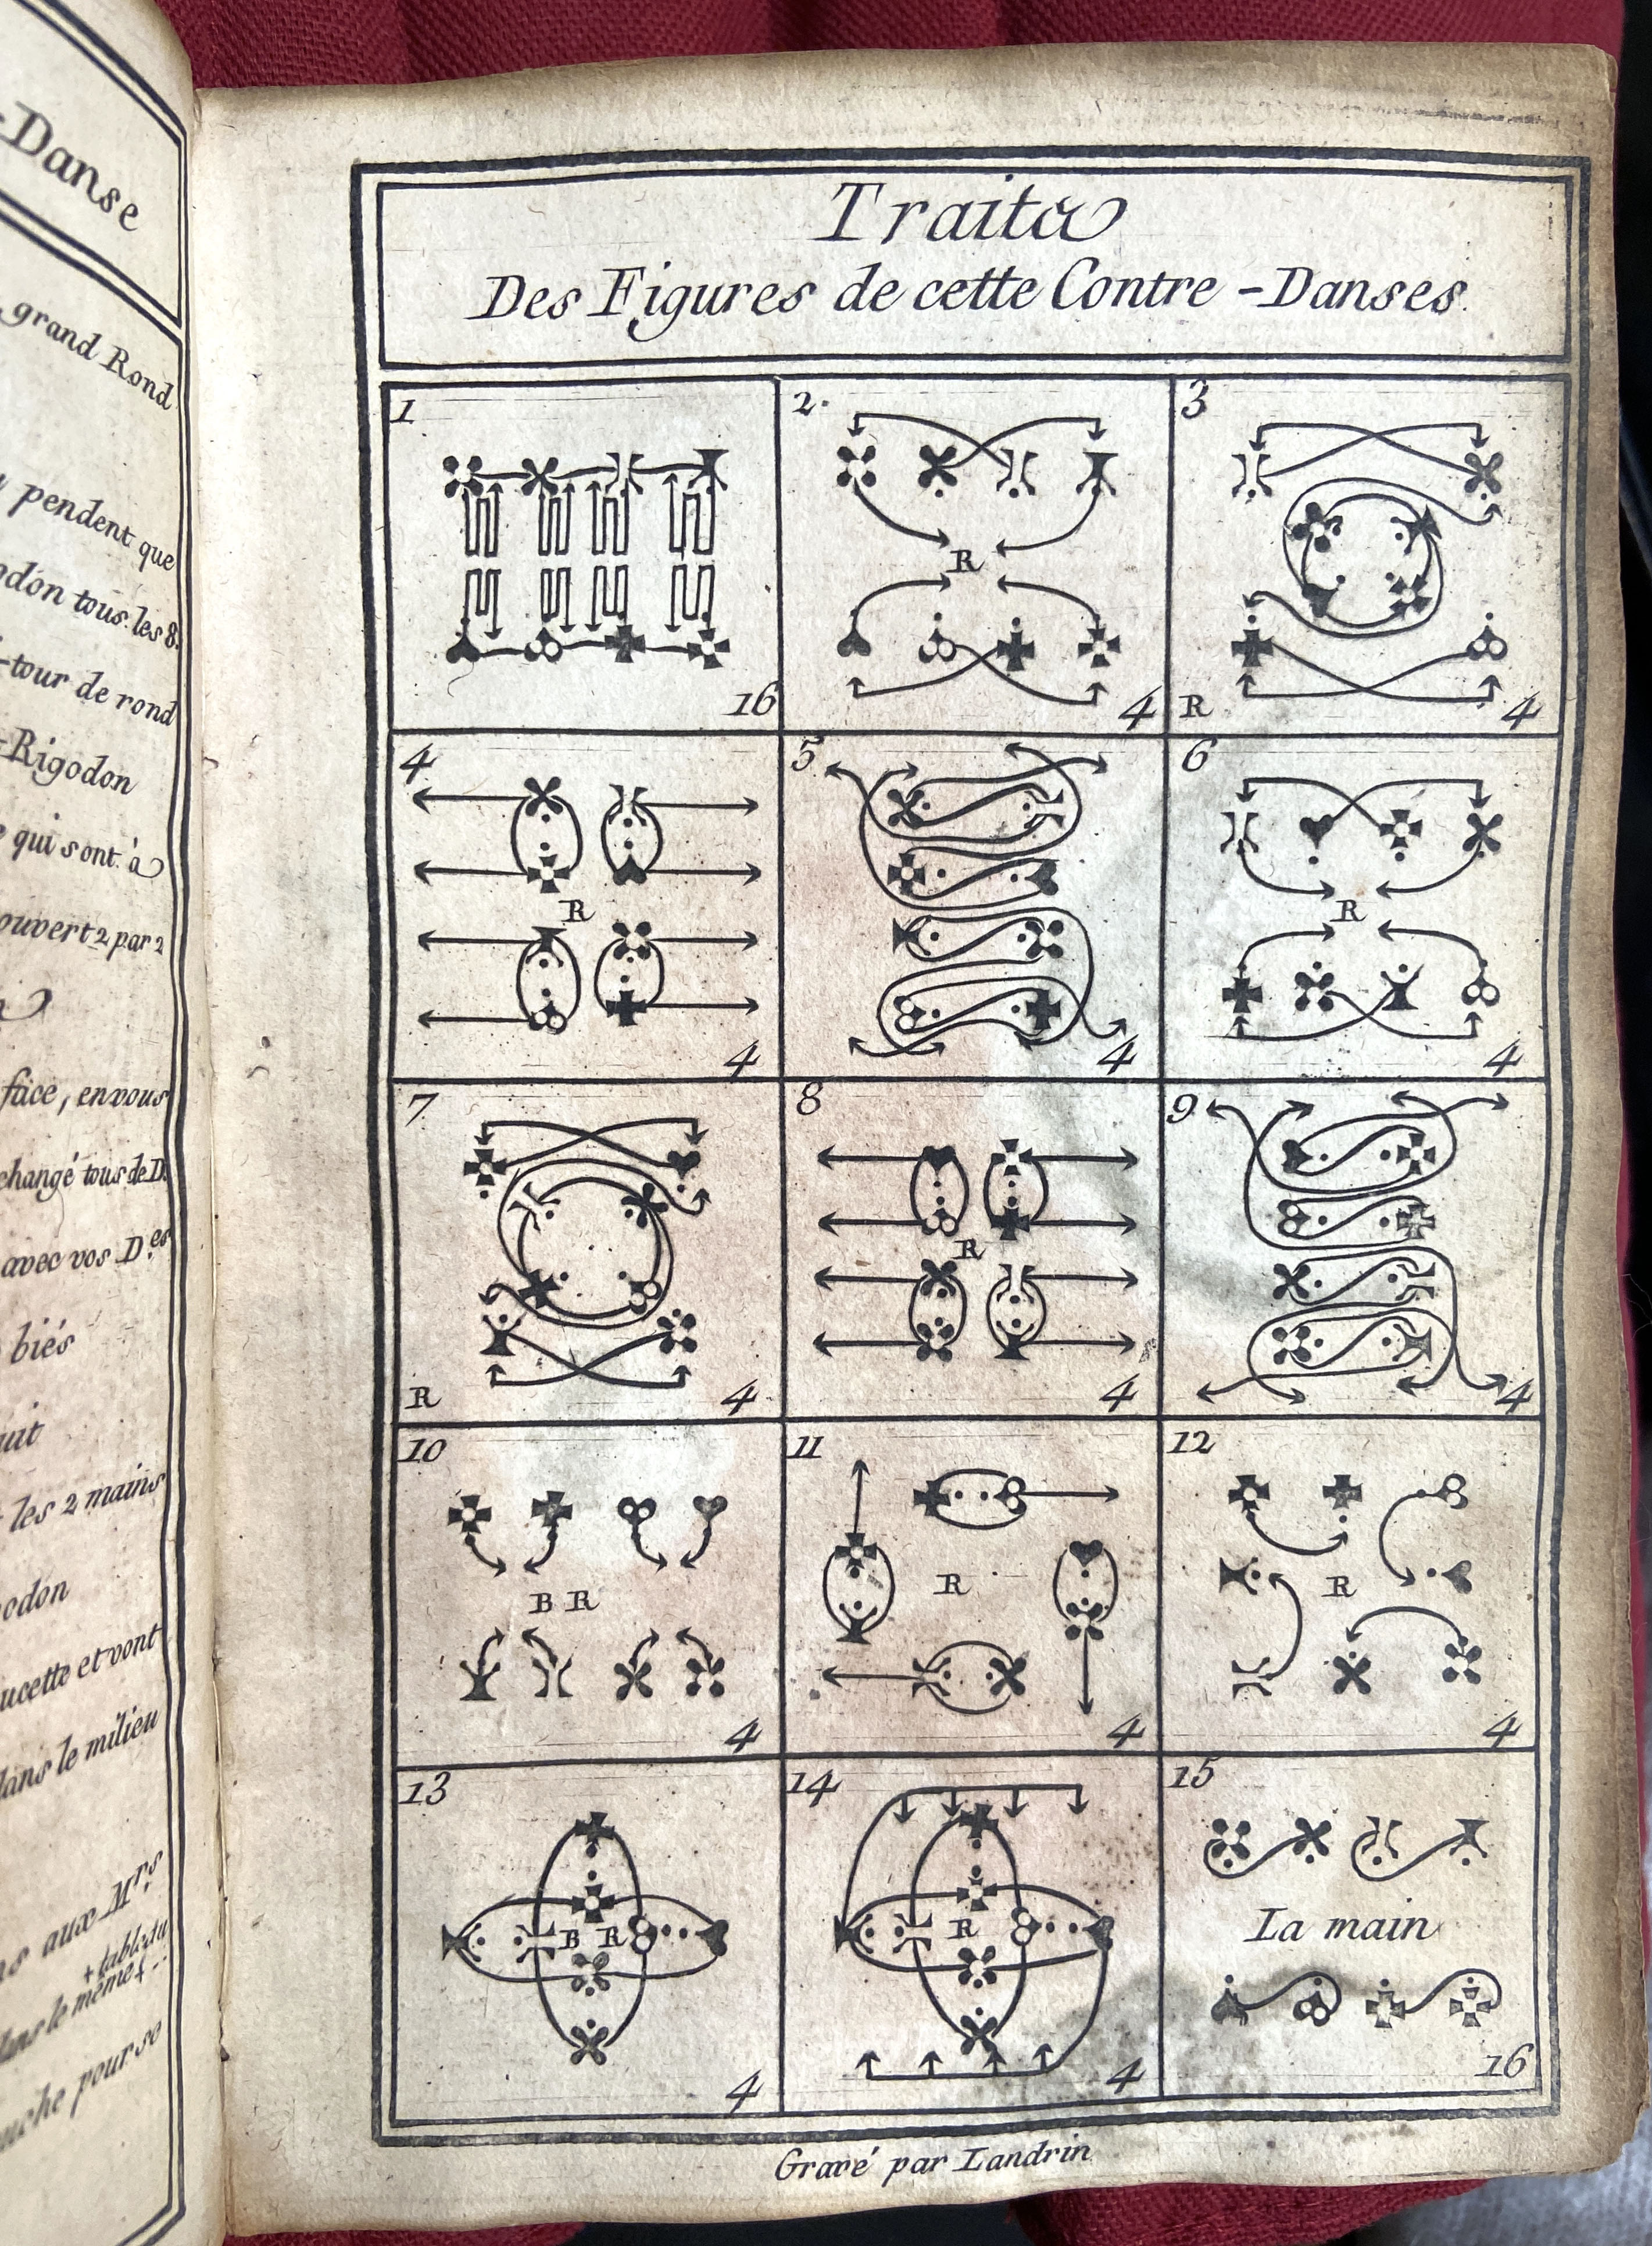 -Danse
grand Rond
pendent que
tous les 8.
-tour de rond
-Rigodon
qui sont à
ouvert 2 par 2
face, en vous
changé tous de D.
avec vos D.es
biés
les 2 mains
et vont
dans le milieu
aux Mrs
+ tableau
dans le même +
pour se
Traité
Des Figures de cette Contre-Danses.
1
16
2.
R
4
3
R
4
4
R
4
5
4
6
R
4
7
R
4
8
R
4
9
4
10
B R
4
11
R
4
12
R
4
13
B R
4
14
R
4
15
La main
16
Gravé par Landrin